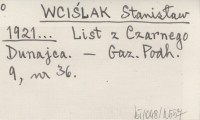 WCIŚLAK Stanisław
1921... List z Czarnego
Dunajca. — Gaz. Podh.
9, nr 36.